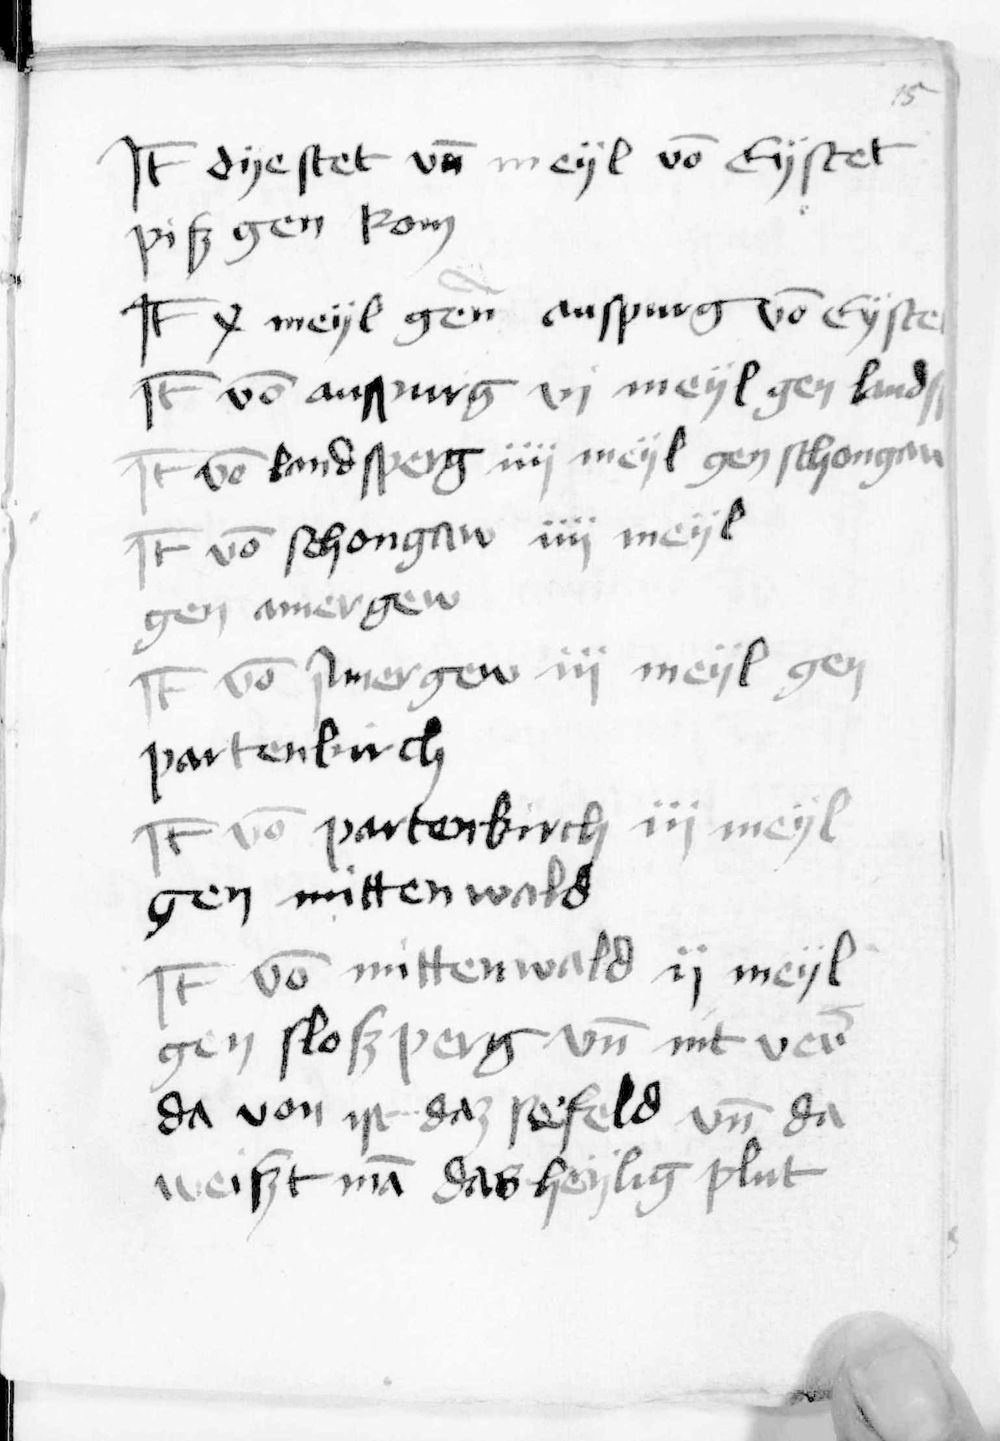 15
It dye stet vn̄ meyl vō Eystet
pisz gen Rom
It x meyl gen̄ auspurg vō Eystet
It vō auspurg vj meyl gen landsp
It vō landsperg iiij meyl gen schongaw
It vō schongaw iiij meyl
gen amergew
It vō Amergew iij meyl gen
partenkirch
It vō partenkirch iij meyl
gen mittenwald
It vō mittenwald ij meyl
gen slosz perg vn̄ nit ver̄
da von ist daz sefeld vn̄ da
weiszt mā das heylig plut